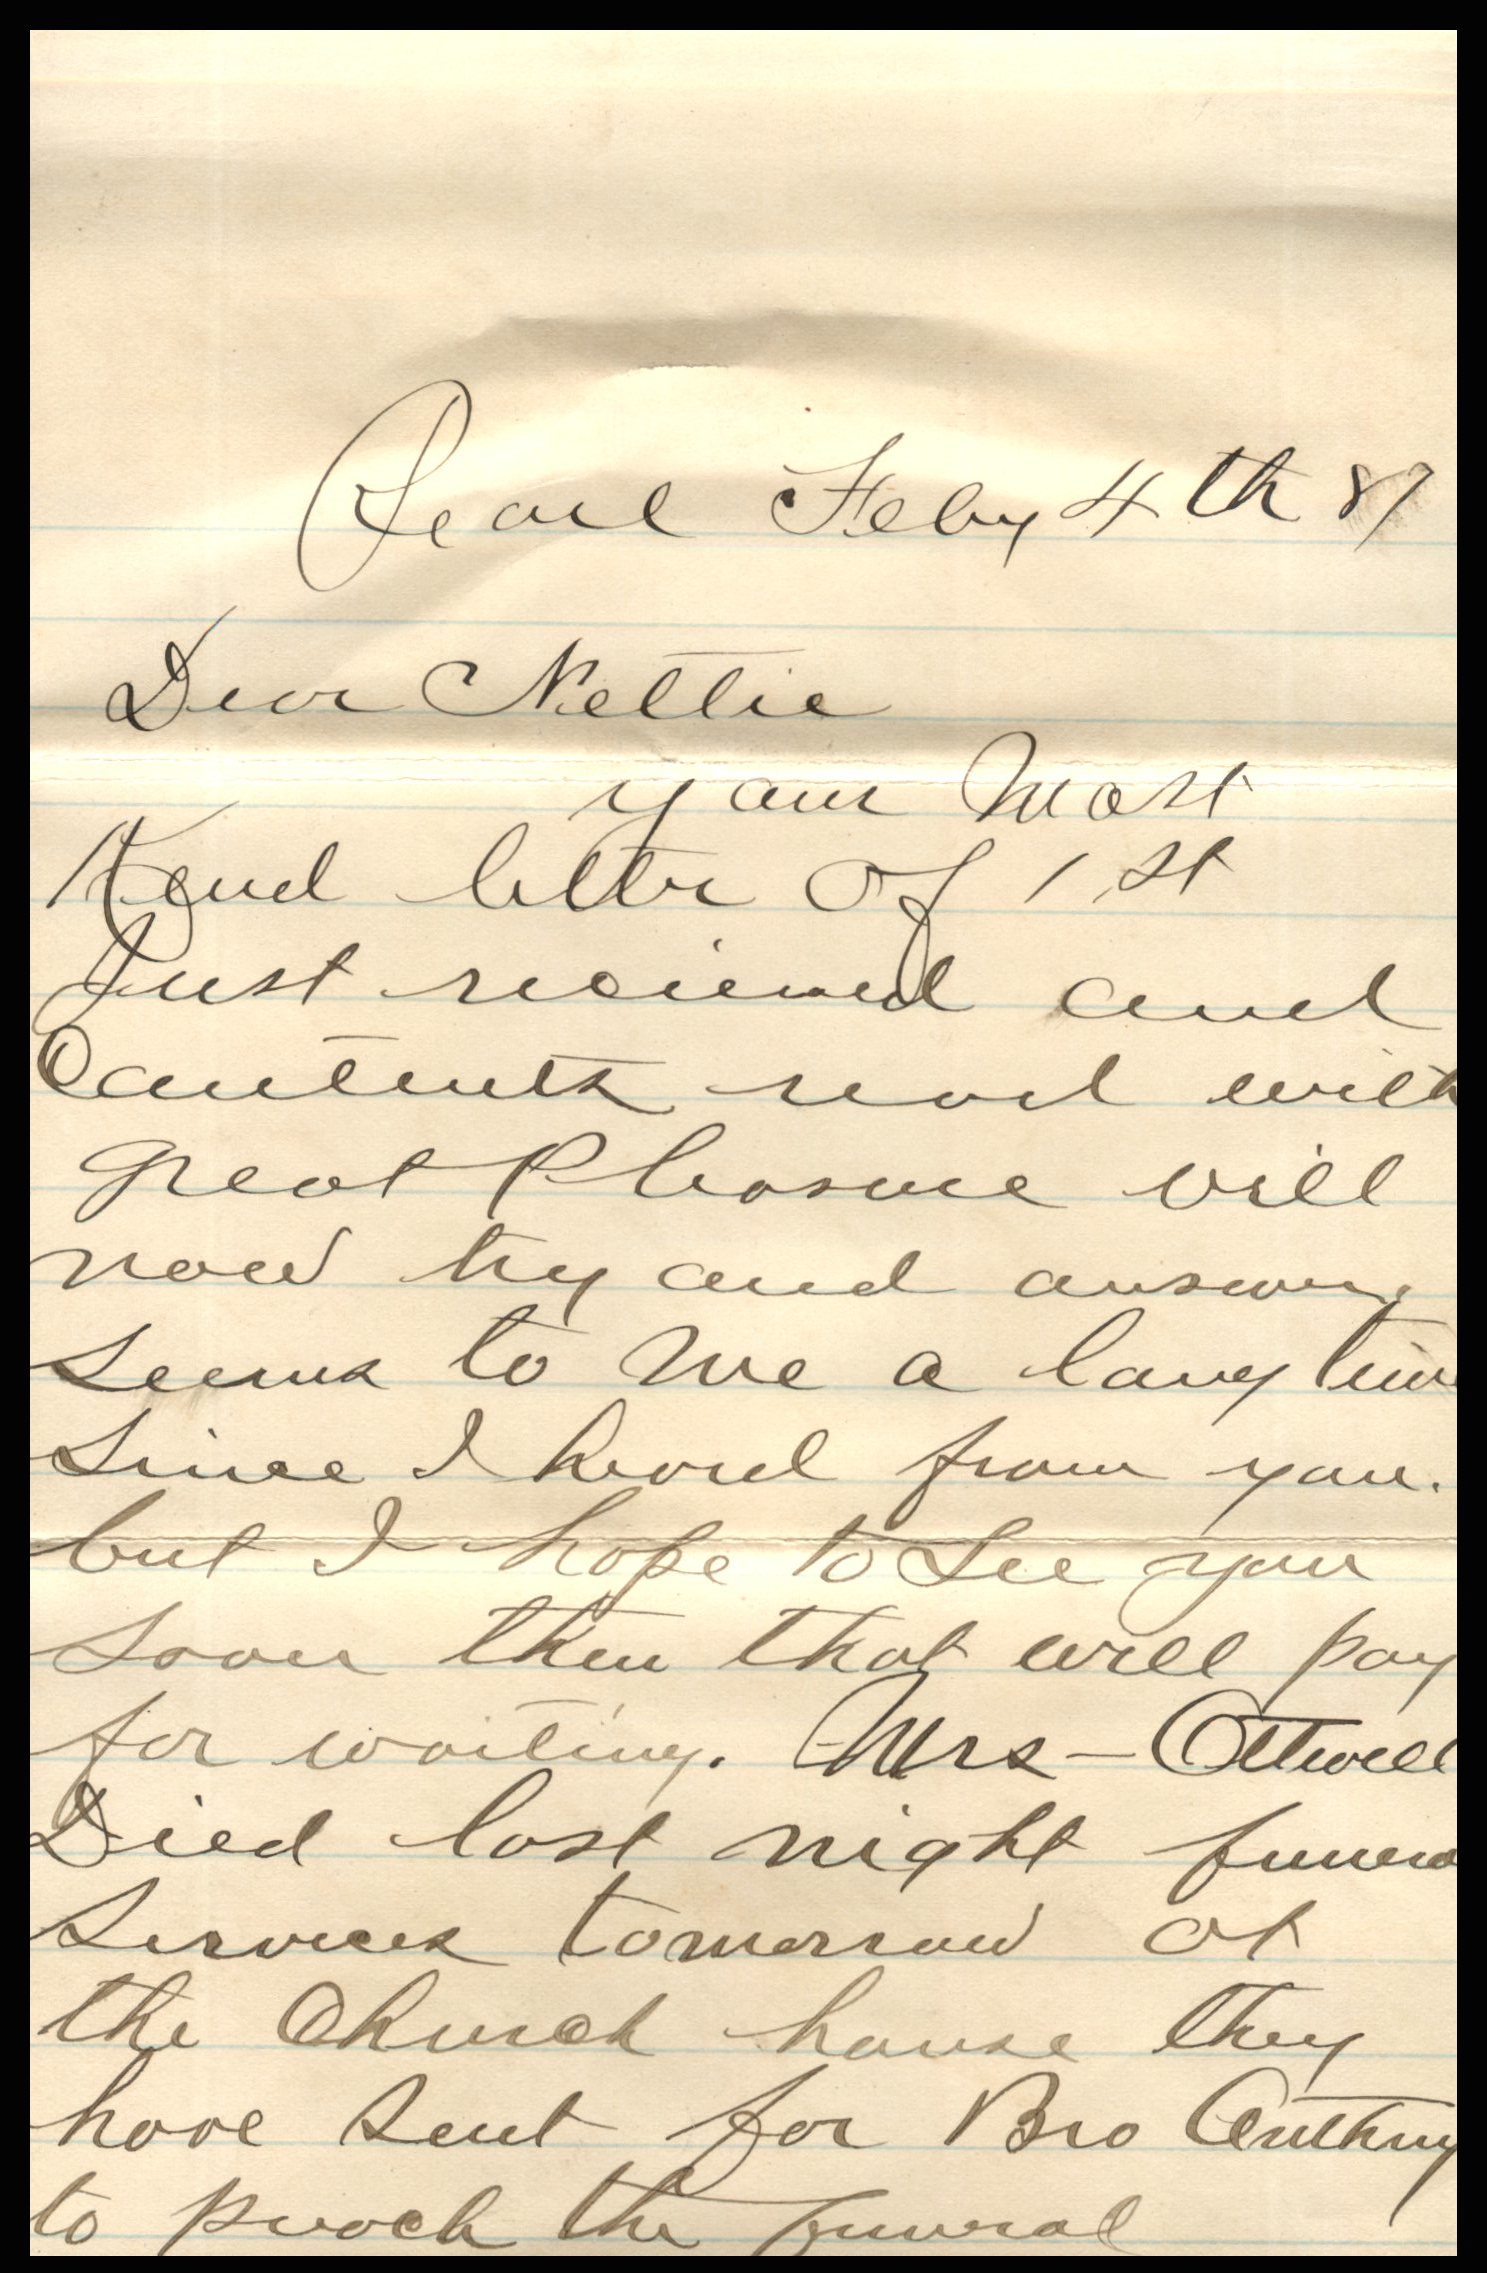 Pearl Feby 4th 87
Dear Nettie
your Most
Kind letter of 1st
Just recieved and
Contents read with
great Pleasure will
now try and answer,
seems to me a long time
since I heard from you.
but I hope to see you
soon then that will pay
for waiting. Mrs - Ottwell
Died last night funera
Services tomorrow at
the Church house they
have sent for Bro Anthny
to preach the funeral